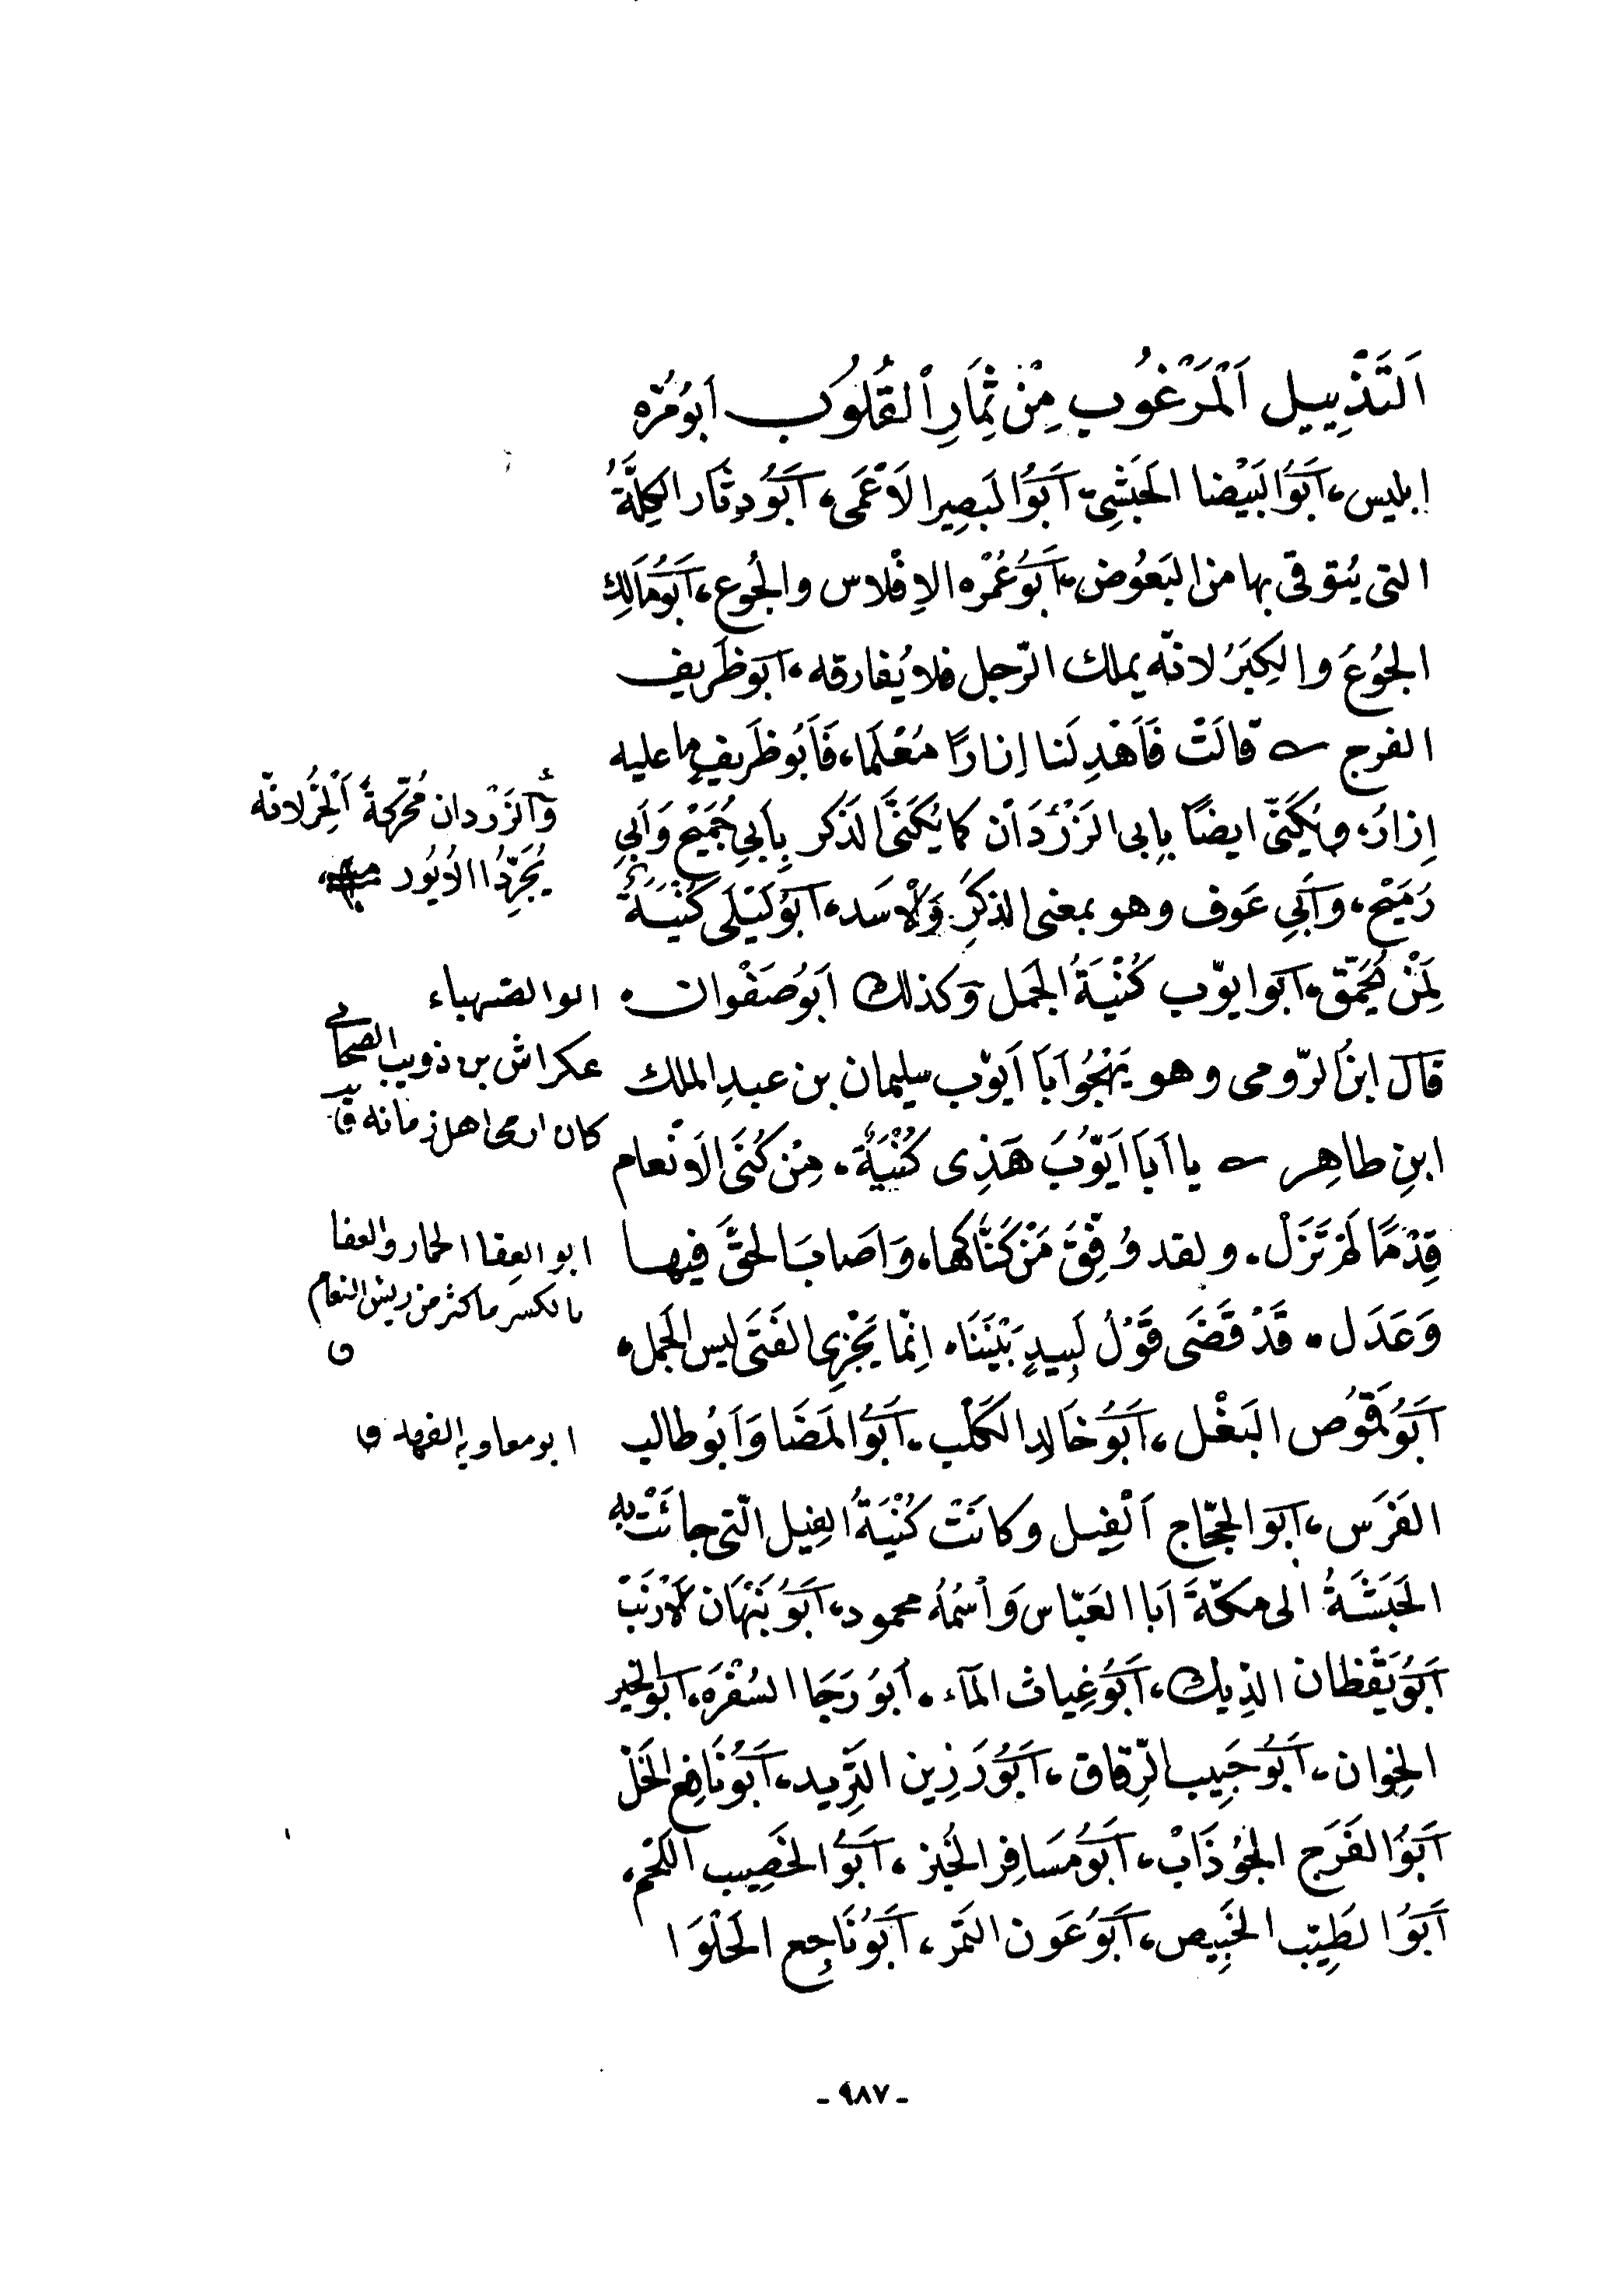 اَلتَّذْيِيل اَلْمَرْغُوب مِنْ ثِمَارِ اُلْقُلُوب اَبُومُرّه
ابليس، اَبَوُالبَيْضا الحَبَشِىّ، اَبَوُالبَصِيرالاَعْمَى، اَبَوُدِثَار الكِلَّةُ
التى يُتوقى بها من البَعُوض، اَبَوُعُمْرَه الاِفْلاس والجُوع، اَبَوُمَالِك
الجُوُعَ والكِبَرُ لانّه يملك الرّجل فلا يُفارقه، اَبَوظَرِيف
الفرج ــ قالَتْ فَاَهْدِ لَنا اِزارًا مُعْلَما، فَاَبُوظَرِيفٍ ما عليه
اِزارُ، ويُكَنَّى ايضًا بابى الزَرْدَان كما يُكَنَّى الذَكر بِاَبِي جُمَيْح وَاَبِي
رُمَيْح، وَاَبِي عَوف وهو بمعنى الذكَرِ وَالاَسَد، اَبَوُلَيْلَى كُنْيَةُ
لِمَنْ يُحَمَّق، اَبَوايّوب كُنْيَةُ الجَمل وَكذلك اَبُوصَفْوان،
قال ابنُ الرّومى وهو يَهْجُو اَبَا اَيّوْب سليمان بن عبدِ الملك
ابنِ طاهِر ــ يا اَبَا اَيّوُبَ هَذِى كُنْيَةٌ، مِنْ كُنَى الاَنْعام
قِدْمًا لَمْ تَزَلْ، ولقد وُفِّقَ مَنْ كَنَّاكَها، وَاَصَابَ الحَقَّ فِيها
وَعَدَل، قَدْ قَضَى قَوْلُ لَبِيدٍ بَيْنَنَا، اِنّما يَجْزِى الفَتَى ليس الجَمل،
اَبَوُقَمُوُص البَغْل، اَبَوُخَالِد الكَلْب، اَبَوُالمَضَا وَاَبُوطالب
الفَرَس، اَبَوالحَجّاج اَلْفِيل وكانَتْ كُنْيَةُ الفِيل الّتى جائَتْ بِه
الحَبَشَةُ الى مكّةَ اَبَا العَبّاس وَاْسْمُهُ محمود، اَبَوُنَبْهَان الاَرْنَبْ
اَبَوُيَقْظان الدِيك، اَبَوُغِياث المَآء، اَبوُرَجَا السُفْرَه، اَبَوالخير
الخِوان، اَبَوُحَبِيب الرِّقاق، اَبَوُرَزِين الثَّرِيد، اَبَوُنَافِع الخَلّ
اَبَوُالفَرَج الجُوُذَابْ، اَبَوُمُسَافِر الخُبْز، اَبَوُالخَصِيب اللَحْم،
اَبَوُالطَيِّب الخَبِيص، اَبَوُعَون التَمْر، اَبَوُنَاجِع الحَلْوَا
وَالزَرَدان مُحَرّكةً اَلْحِرُ لانّه
يُجَرِّدُ الاُيُور
ابوالصَهباء
عكراش بن ذويب الصحابى
كان ارمى اهل زمانه ق
ابوالعِفا الحمار والعفا
بالكسر ما كثر من ريش النعام
ق
ابومعاوية الفهد ق
- ٩٨٧ -